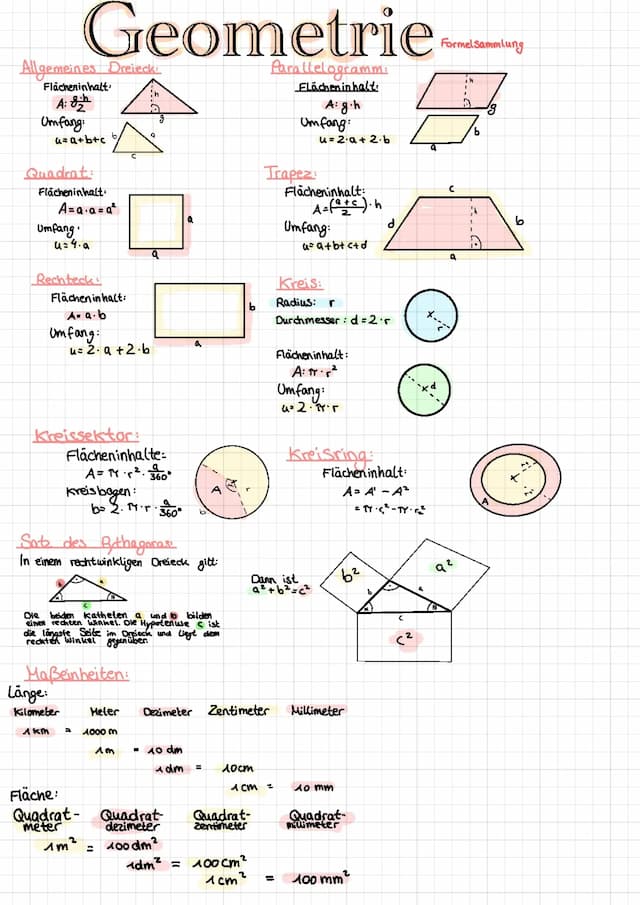 Geometrie Formelsammlung
Allgemeines Dreieck:
Flächeninhalt:
A: g·h/2
Umfang:
u=a+b+c
h
g
b
a
c
Parallelogramm:
Flächeninhalt:
A: g·h
Umfang:
u=2·a+2·b
h
g
b
a
Quadrat:
Flächeninhalt:
A=a·a=a²
Umfang:
u=4·a
a
a
Trapez:
Flächeninhalt:
A=(a+c/2)·h
Umfang:
u=a+b+c+d
c
d
h
b
a
Rechteck:
Flächeninhalt:
A= a·b
Umfang:
u=2·a+2·b
b
a
Kreis:
Radius: r
Durchmesser: d=2·r
r
Flächeninhalt:
A: π·r²
Umfang:
u=2·π·r
d
Kreissektor:
Flächeninhalte:
A= π·r²· α/360°
Kreisbogen:
b=2·π·r· α/360°
A
r
b
Kreisring:
Flächeninhalt:
A= A¹ - A²
=π·r₁²-π·r₂²
A
Satz des Pythagoras:
In einem rechtwinkligen Dreieck gilt:
b
a
c
Die beiden Katheten a und b bilden
einen rechten Winkel. Die Hypotenuse c ist
die längste Seite im Dreieck und liegt dem
rechten Winkel gegenüber.
Dann ist
a²+b²=c²
b²
a²
b
a
c
c²
Maßeinheiten:
Länge:
Kilometer Meter Dezimeter Zentimeter Millimeter
1 km = 1000 m
1m = 10 dm
1dm = 10cm
1cm = 10 mm
Fläche:
Quadrat-
meter
Quadrat-
dezimeter
Quadrat-
zentimeter
Quadrat-
millimeter
1m² = 100dm²
1dm² = 100cm²
1cm² = 100mm²